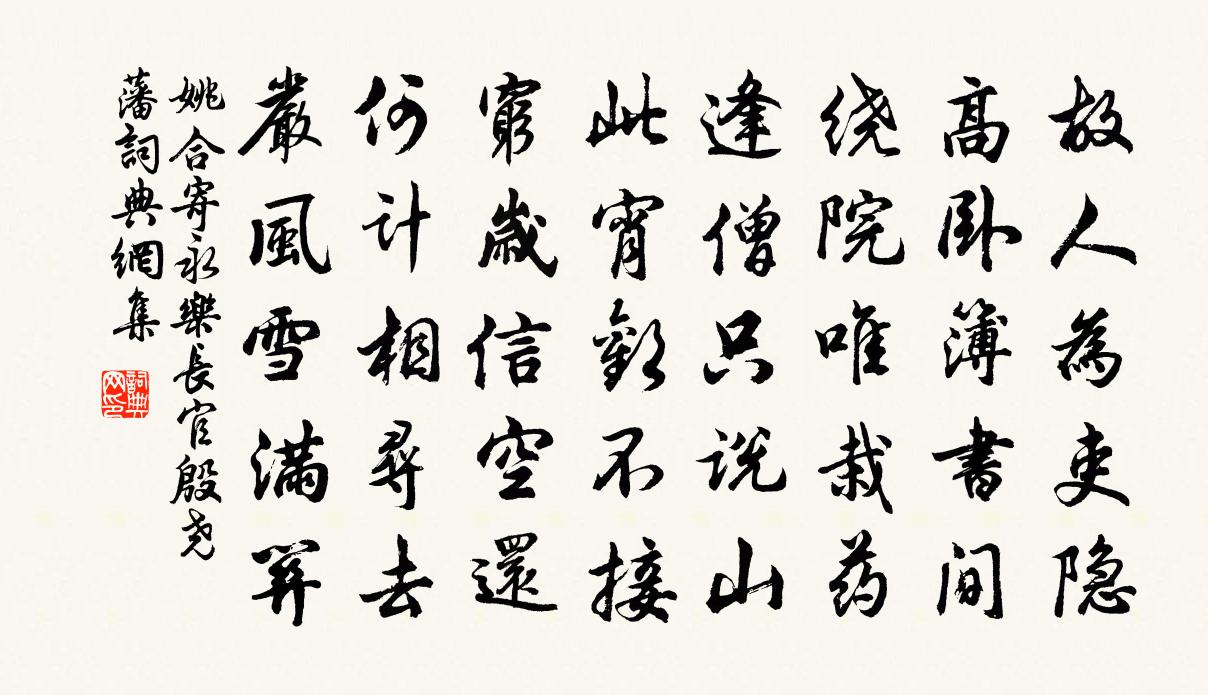 故人為吏隐
高卧簿書间
绕院唯栽药
逢僧只说山
此宵歡不接
窮歲信空還
何计相尋去
嚴風雪满關
姚合寄永樂長官殷尧
藩詞典網集
詞典网印